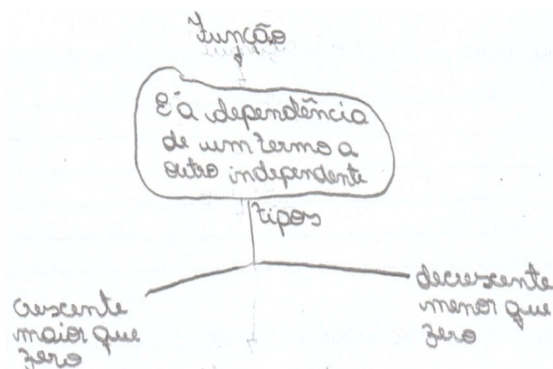 Função
É a dependência
de um termo a
outro independente
tipos
crescente
maior que
zero
decrescente
menor que
zero